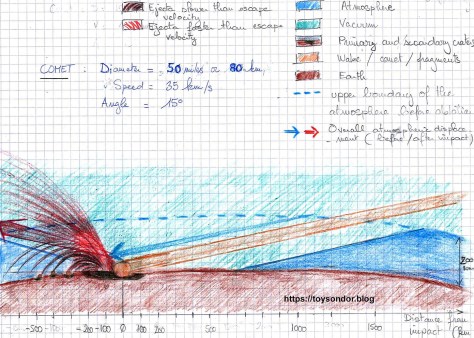 Ejecta slower than escape
velocity
Ejecta faster than escape
velocity
COMET : Diameter = 50 miles or 80 km
Speed = 35 km/s
Angle = 15°
Atmosphere
Vacuum
Primary and Secondary crater
Wake / comet / fragments
Earth
upper boundary of the
atmosphere before
Overall atmospheric displace
-ment (before/after impact)
200
https://toysondor.blog
-500 -200 -100 0 100 200 1000 1500
Distance from
impact (km